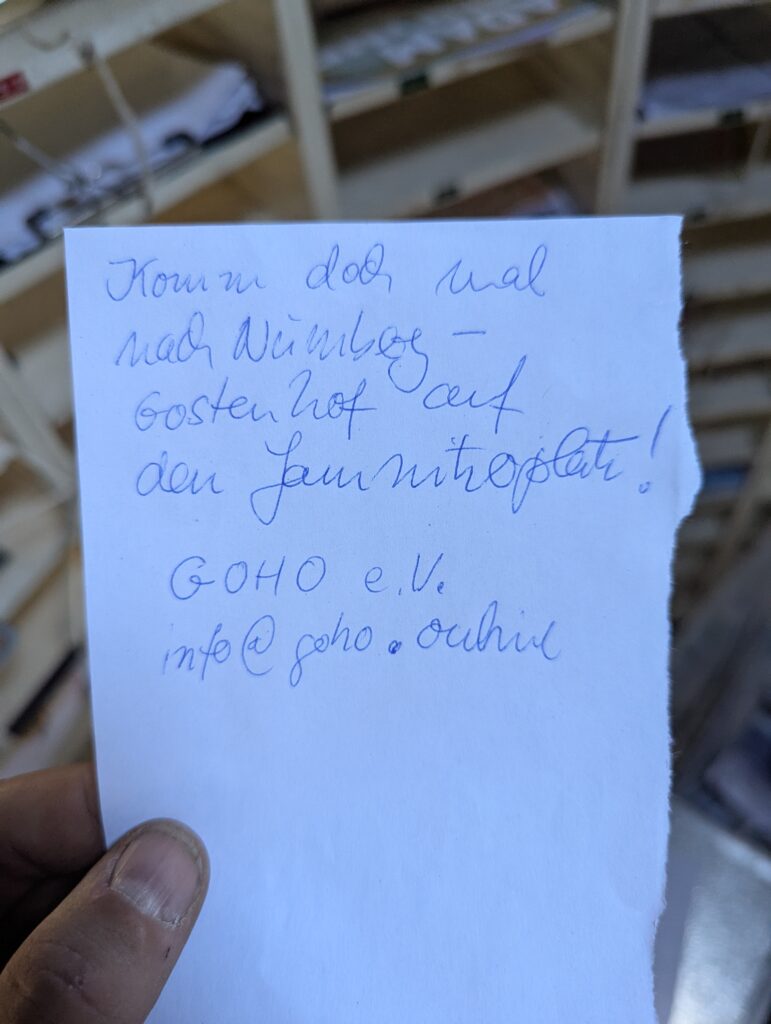 Komm doch mal
nach Nürnberg -
Gostenhof auf
den Jamnitzerplatz!
GOHO e.V.
info@goho.online